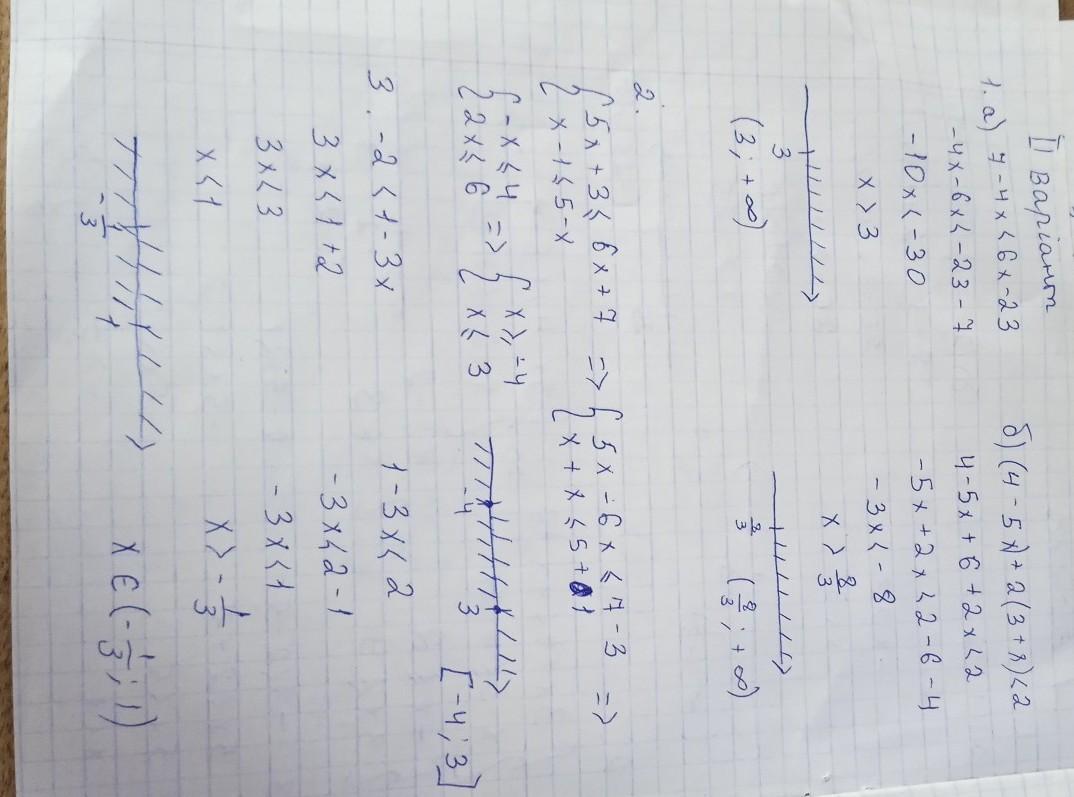 II Варіант
1. а) 7-4x<6x-23
-4x-6x<-23-7
-10x<-30
x>3
3
(3; +∞)
б) (4-5x)+2(3+x)<2
4-5x+6+2x<2
-5x+2x<2-6-4
-3x<-8
x>8/3
8/3
(8/3; +∞)
2.
{5x+3≤6x+7 => {5x-6x≤7-3 =>
{x-1≤5-x {x+x≤5+1
{-x≤4 => {x≥-4
{2x≤6 {x≤3
-4 3 [-4;3]
3. -2<1-3x
3x<1+2
3x<3
x<1
1-3x<2
-3x<2-1
-3x<1
x>-1/3
-1/3 1 x∈(-1/3;1)